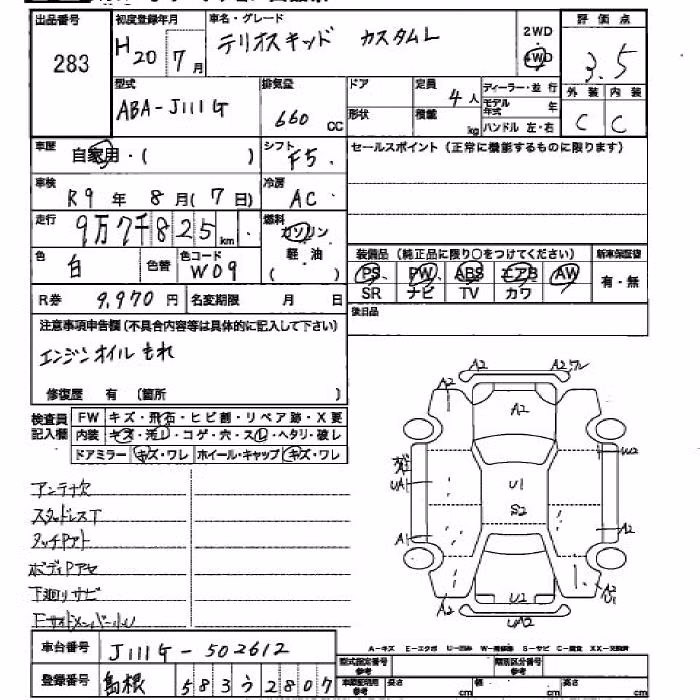 出品番号 初度登録年月 車名・グレード 評価点
283 H20年7月 テリオスキッド カスタムL 2WD 4WD 3.5
型式 排気量 ドア 定員 ディーラー・並 行 外装 内装
ABA-J111G 660 CC 4人 モデル年式 年 C C
形状 積載 kg ハンドル 左・右
車歴 自家用・( ) シフト F5. セールスポイント(正常に機能するものに限ります)
車検 R9年8月(7日) 冷房 AC
走行 9万7千825km 燃料 ガソリン 軽油
色 白 色替 色コード W09 装備品(純正品に限り○をつけてください) 新車保証書
PS PW ABS エアB AW 有・無
SR ナビ TV カワ
R券 9,970円 名変期限 月 日 後日品
注意事項申告欄(不具合内容等は具体的に記入して下さい)
エンジンオイルもれ
修復歴 有 (箇所 )
検査員記入欄 FW キズ・飛石・ヒビ割・リペア跡・X要
内装 キズ・汚レ・コゲ・穴・スレ・ヘタリ・破レ
ドアミラー キズ・ワレ ホイール・キャップ キズ・ワレ
A2 A2ワレ
A2 A2
W2
UA1 U1
S2
A1 A2
A2 UA2 A2
アンテナ欠
スタッドレスT
タッチPアト
ボディPアセ
下廻りサビ
FサイドメンバーU
車台番号 J111G-502612
A-キズ E-エクボ U-凹み W-補修跡 S-サビ C-腐食 XX-交換済
登録番号 島根 583 う 2807
型式指定番号 参考 類別区分番号 参考
車庫証明用 参考 長さ cm 幅 cm 高さ cm